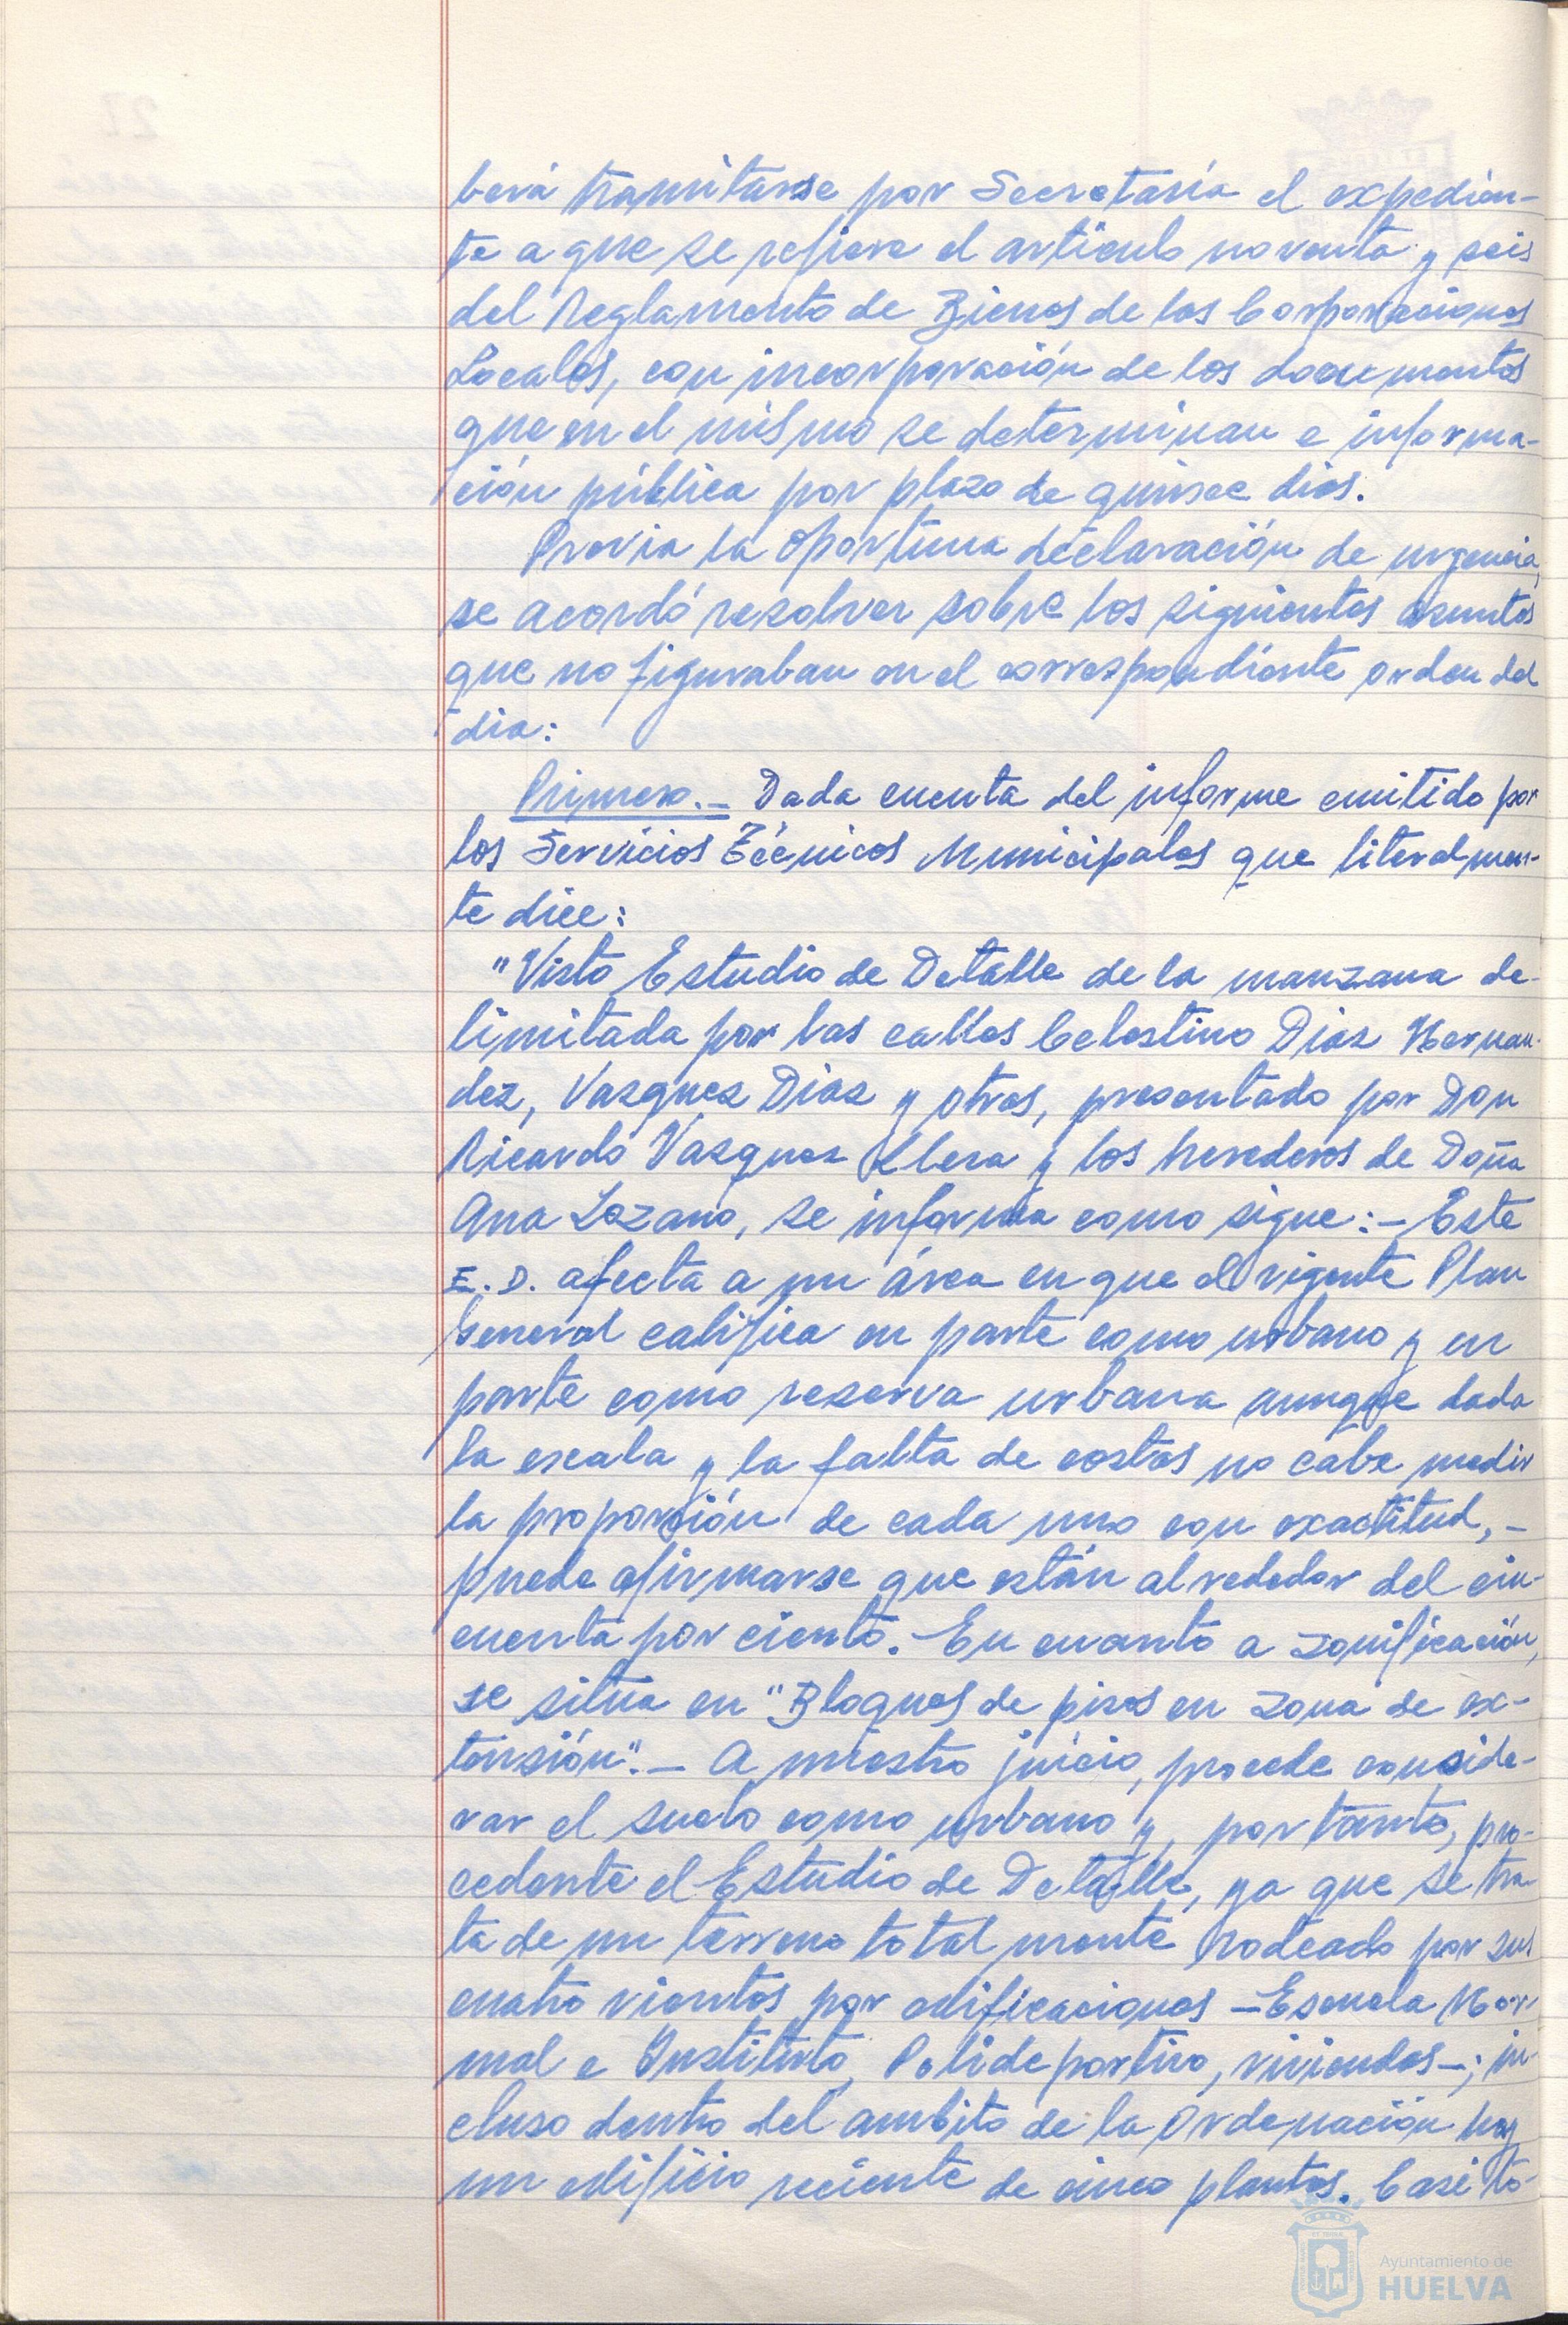 berá tramitarse por Secretaría el expedien-
te a que se refiere el artículo noventa y seis
del Reglamento de Bienes de las Corporaciones
Locales, con incorporación de los documentos
que en el mismo se determinan e informa-
ción pública por plazo de quince dias.
Previa la oportuna declaración de urgencia,
se acordó resolver sobre los siguientes asuntos
que no figuraban en el correspondiente orden del
dia:
Primero.- Dada cuenta del informe emitido por
los Servicios Técnicos Municipales que literalmen-
te dice:
"Visto Estudio de Detalle de la manzana de-
limitada por las calles Celestino Diaz Hernan-
dez, Vazquez Diaz y otras, presentado por Don
Ricardo Vazquez Llera y los herederos de Doña
Ana Lozano, se informa como sigue:- Este
E.D. afecta a un área en que el vigente Plan
General califica en parte como urbano y en
parte como reserva urbana aunque dada
la escala y la falta de cotas no cabe medir
la proporción de cada uno con exactitud,-
puede afirmarse que están alrededor del cin-
cuenta por ciento.- En cuanto a zonificación,
se situa en "Bloques de pisos en zona de ex-
tensión".- A nuestro juicio, procede conside-
rar el suelo como urbano y, por tanto, pro-
cedente el Estudio de Detalle, ya que se tra-
ta de un terreno totalmente rodeado por sus
cuatro vientos por edificaciones -Escuela Nor-
mal e Instituto, Polideportivo, viviendas-; in-
cluso dentro del ambito de la Ordenación hay
un edificio reciente de cinco plantas. Casi to-
Ayuntamiento de
HUELVA